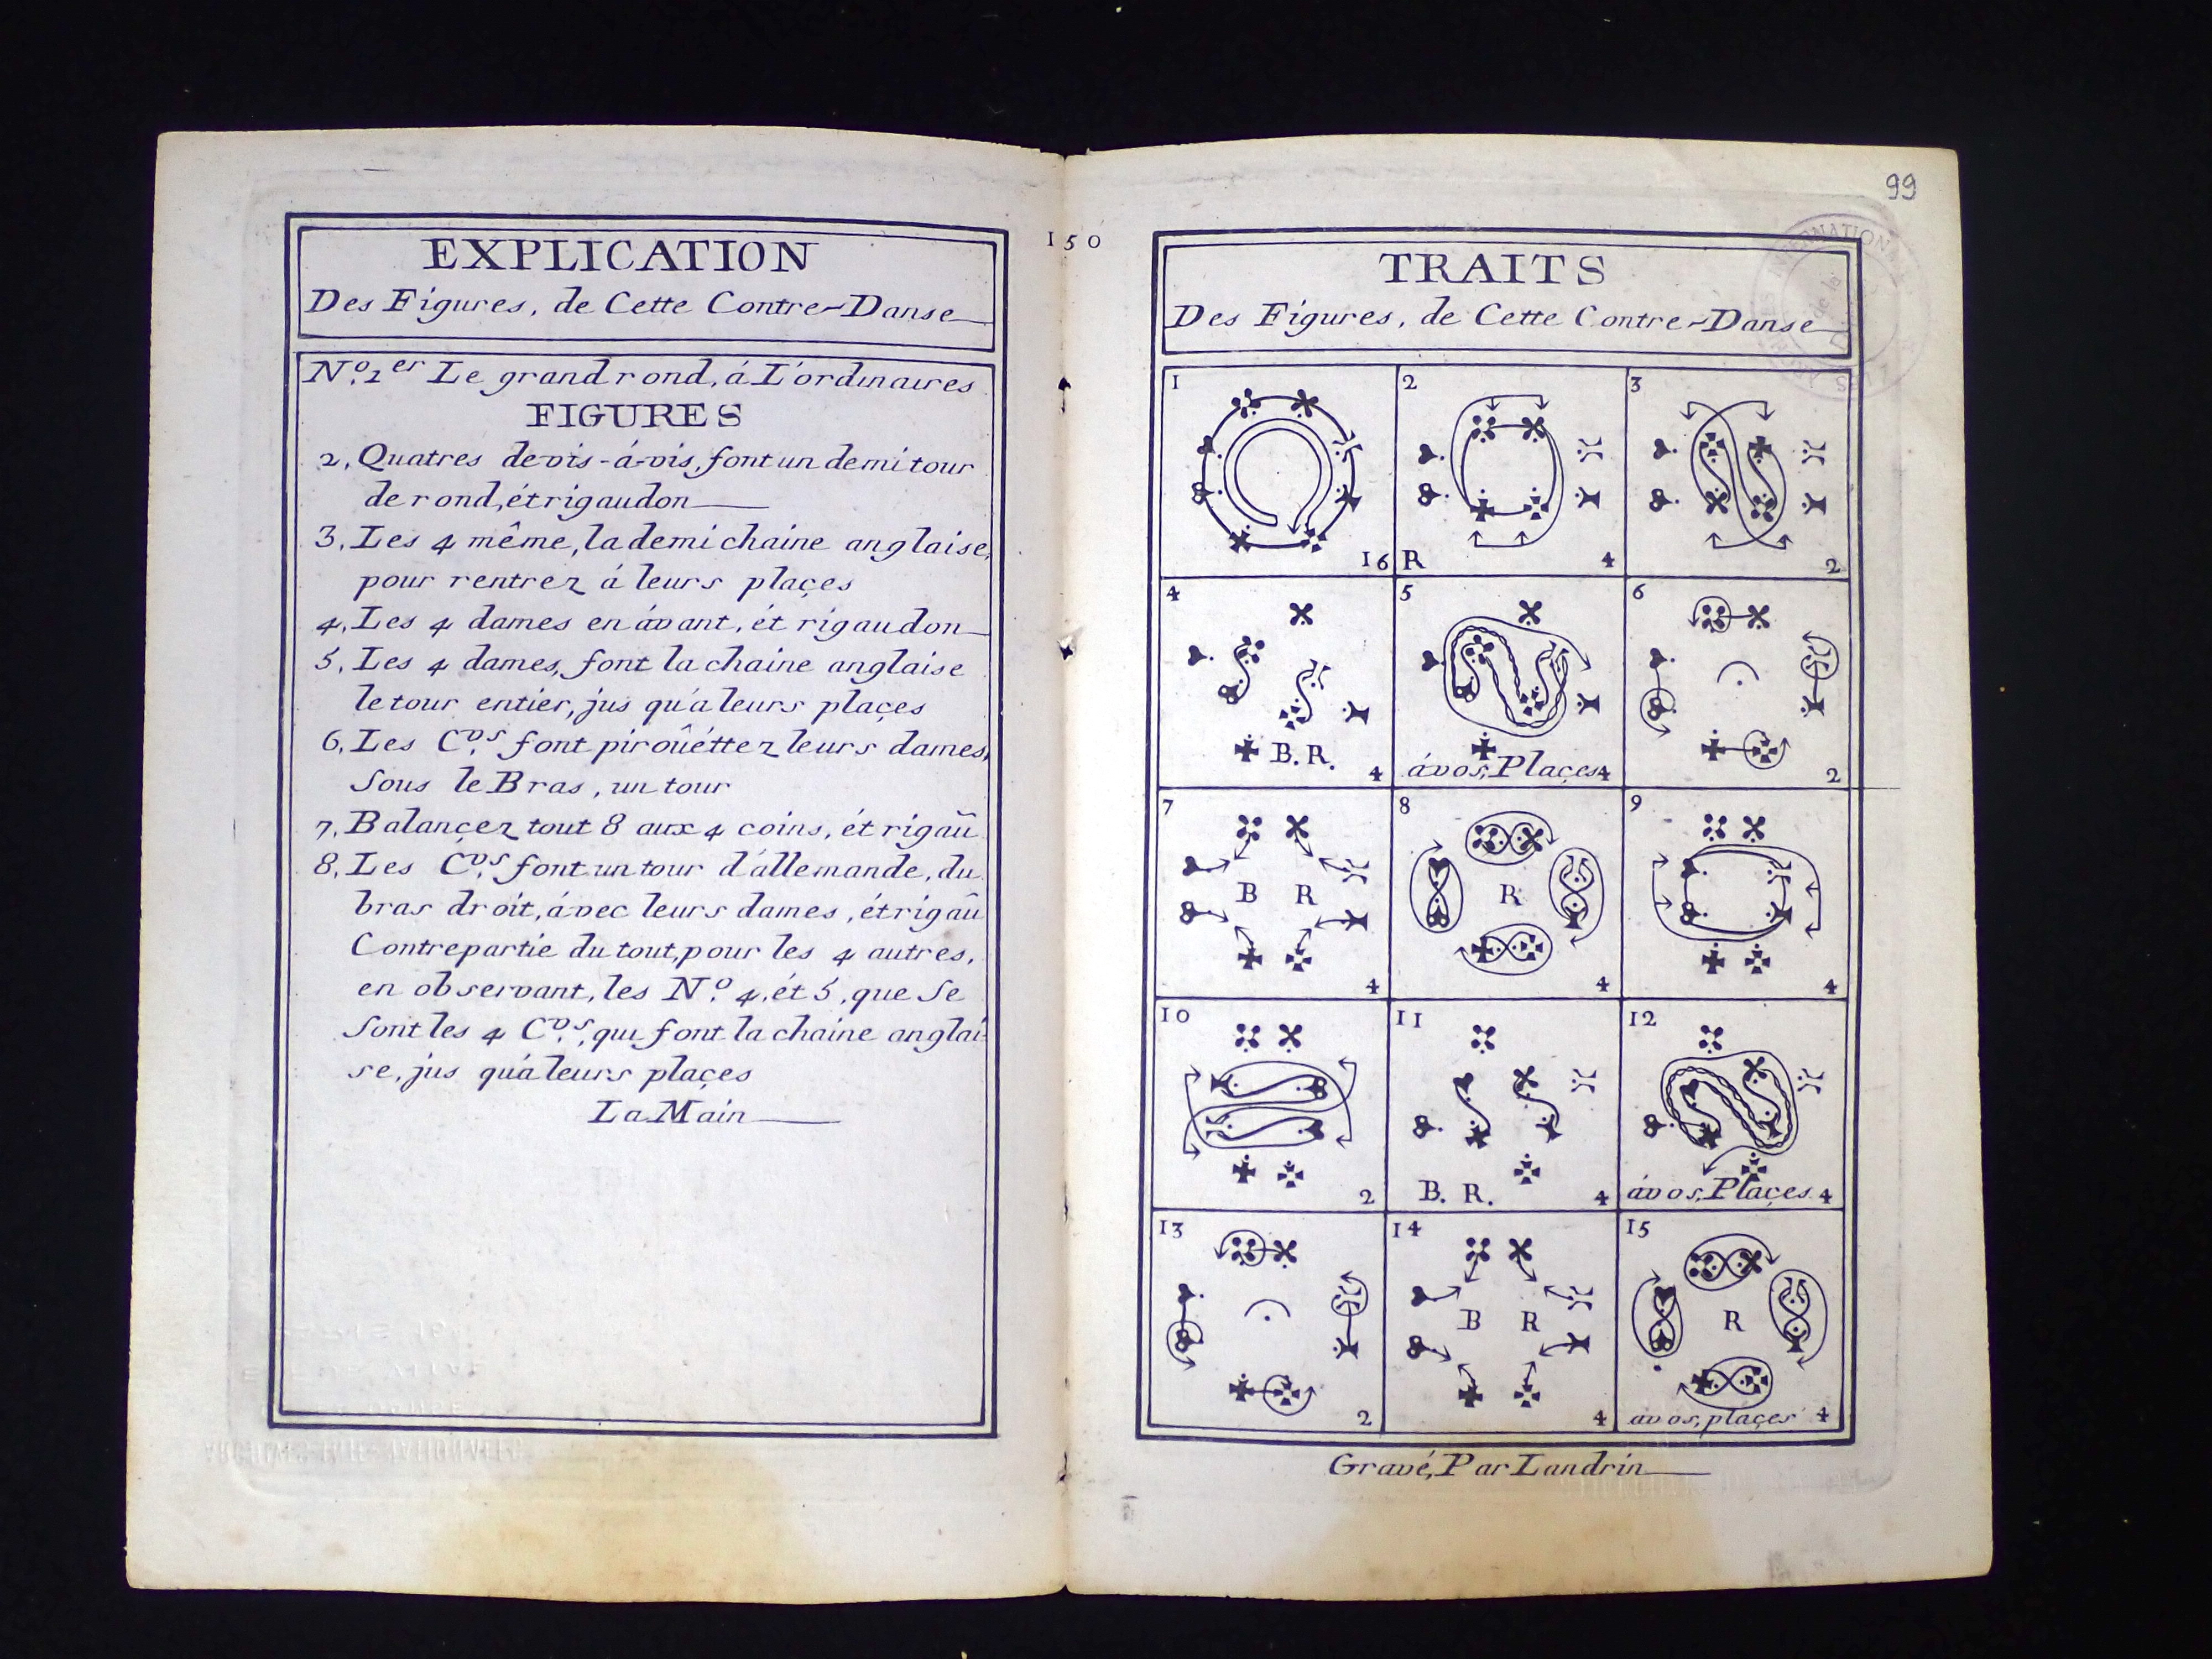 EXPLICATION
Des Figures, de Cette Contre-Danse
Nº.1er Le grand rond, á L'ordinaires
FIGURES
2, Quatres de vis-á-vis, font un demi tour
de rond, ét rigaudon
3, Les 4 même, la demi chaine anglaise,
pour rentrez á leurs plaçes
4, Les 4 dames en ávant, ét rigaudon
5, Les 4 dames, font la chaine anglaise
le tour entier, jus qu'a leurs plaçes
6, Les C.ers font piroûéttez leurs dames,
Sous le Bras, un tour
7, Balançez tout 8 aux 4 coins, ét rigaũ
8, Les C.ers font un tour d'állemande, du
bras droit, ávec leurs dames, ét rigaũ
Contrepartie du tout, pour les 4 autres,
en observant, les Nº. 4, ét 5, que Se
Sont les 4 C.ers, qui font la chaine anglai-
se, jus qu'á leurs plaçes
La Main
150
99
TRAITS
Des Figures, de Cette Contre-Danse
1 2 3
16 R 4 2
4 5 6
B. R. 4 ávos, Plaçes 4 2
7 8 9
B R R
4 4 4
10 11 12
2 B. R. 4 ávos, Plaçes 4
13 14 15
B R R
2 4 avos, plaçes 4
Gravé, Par Landrin